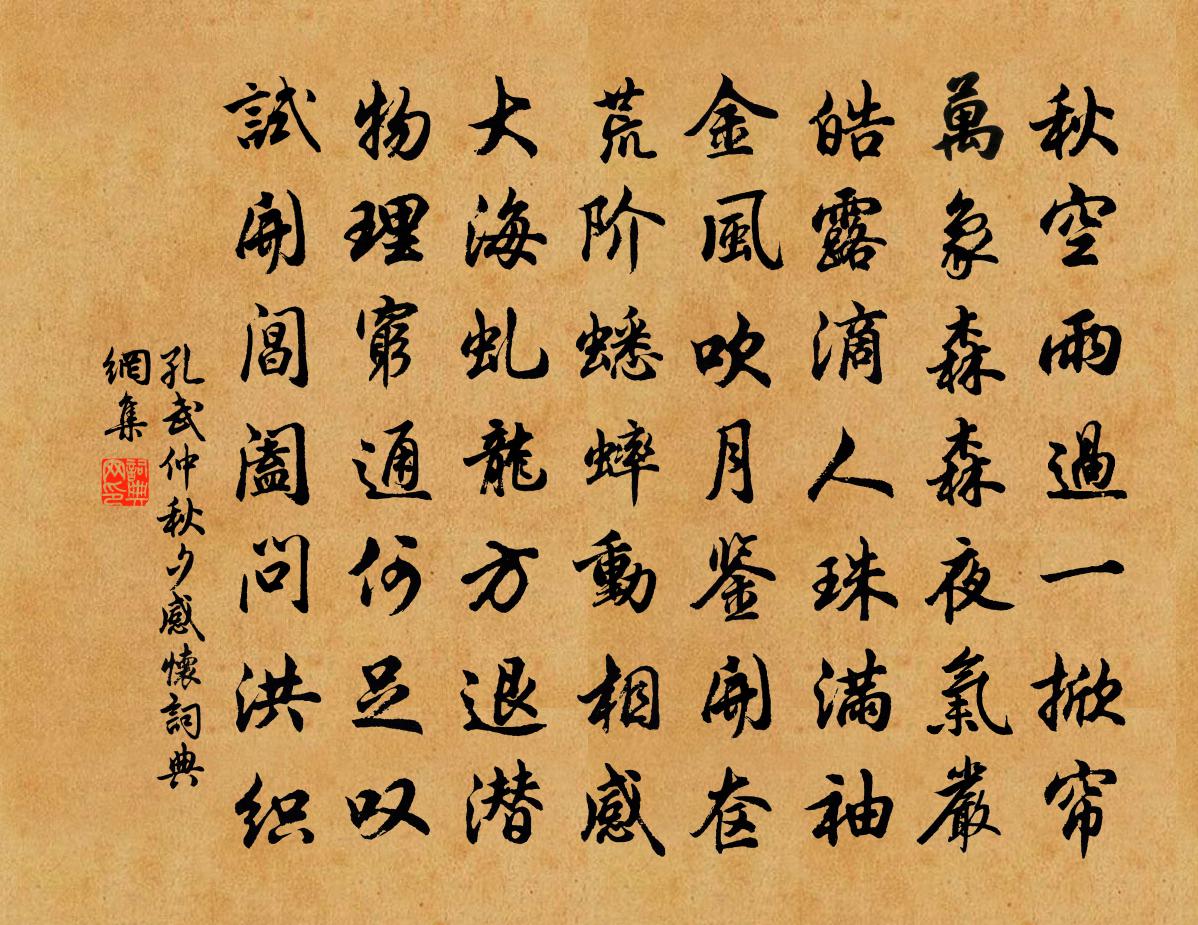 秋空雨過一掀帘
萬象森森夜氣嚴
皓露滴人珠滿袖
金風吹月鉴開奁
荒阶蟋蟀動相感
大海虬龍方退潜
物理窮通何足叹
試開閶阖問洪织
孔武仲秋夕感懷詞典
網集
詞典
网印